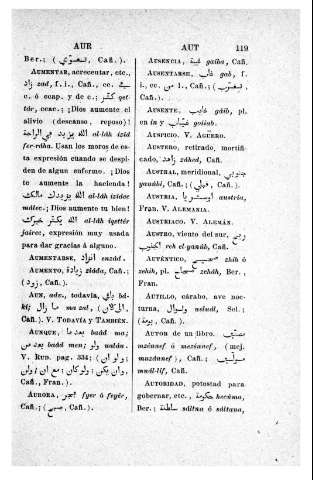 AUR
AUT
119
Ber.; (تسعوّي, Cañ.).
AUMENTAR, acrecentar, etc.,
زاد zad, f. i., Cañ., cc. في
c. ó ecap. y de c.;
¡Dios aumente el
alivio (descanso, reposo)!
الله يزيد في الراحة al-lâh izîd
fer-râha. Usan los moros de es-
ta expresión cuando se despi-
den de algun enfermo. ¡Dios
te aumente la hacienda!
الله يزيدك مالك al-lâh izîdec
mâlec.; ¡Dios aumente tu bien!
الله يكثر خيرك al-lâh iqettér
jairec; expresión muy usada
para dar gracias á alguno.
AUMENTARSE, انزاد enzâd.
AUMENTO, زيادة ziâda, Cañ.;
(زود).
AUN, adv., todavía, باقي bâ-
kî; ما زال ma zal, (
Cañ.). V. TODAVÍA y TAMBIEN.
AUNQUE, بعد ما baâd ma;
بعد من baâd men; ولو ualáu.
V. RUD. pag. 334; (ولو ان;
وان يكن; ولو كان; مع ان; ولن,
Cañ., Fran.).
AURORA, فجر fyer ó feyér,
Cañ.; (صبح, Cañ.).
AUSENCIA, غيبة gaiba, Cañ.
AUSENTARSE, غاب gab, f.
i., cc. من l., Cañ.; (تغيّب,
Cañ.).
AUSENTE, غايب gâib, pl.
en ín y غيّاب guiiab.
AUSPICIO. V. AGÜERO.
AUSTERO, retirado, mortifi-
cado, زاهد zâhed, Cañ.
AUSTRAL, meridional, جنوبي
yanûbí, Cañ.; (قبلي, Cañ.).
AUSTRIA, اوستريا austria,
Fran. V. ALEMANIA.
AUSTRIACO. V. ALEMAN.
AUSTRO, viento del sur, ريح
الجنوب reh el-yanûb, Cañ.
AUTÉNTICO, صحيح zhih ó
zehih, pl. صحاح zehâh, Ber.,
Fran.
AUTILLO, cárabo, ave noc-
turna, ولوال ualuál, Sel.;
(بومة, Cañ.).
AUTOR de un libro, مصنّف
mzánnef ó mozánnef, (mej.
mozánnef), Cañ.; مولّف
muál-lif, Cañ.
AUTORIDAD, potestad para
gobernar, etc., حكومة hocûma,
Ber.; سلطنة sáltna ó sáltana,